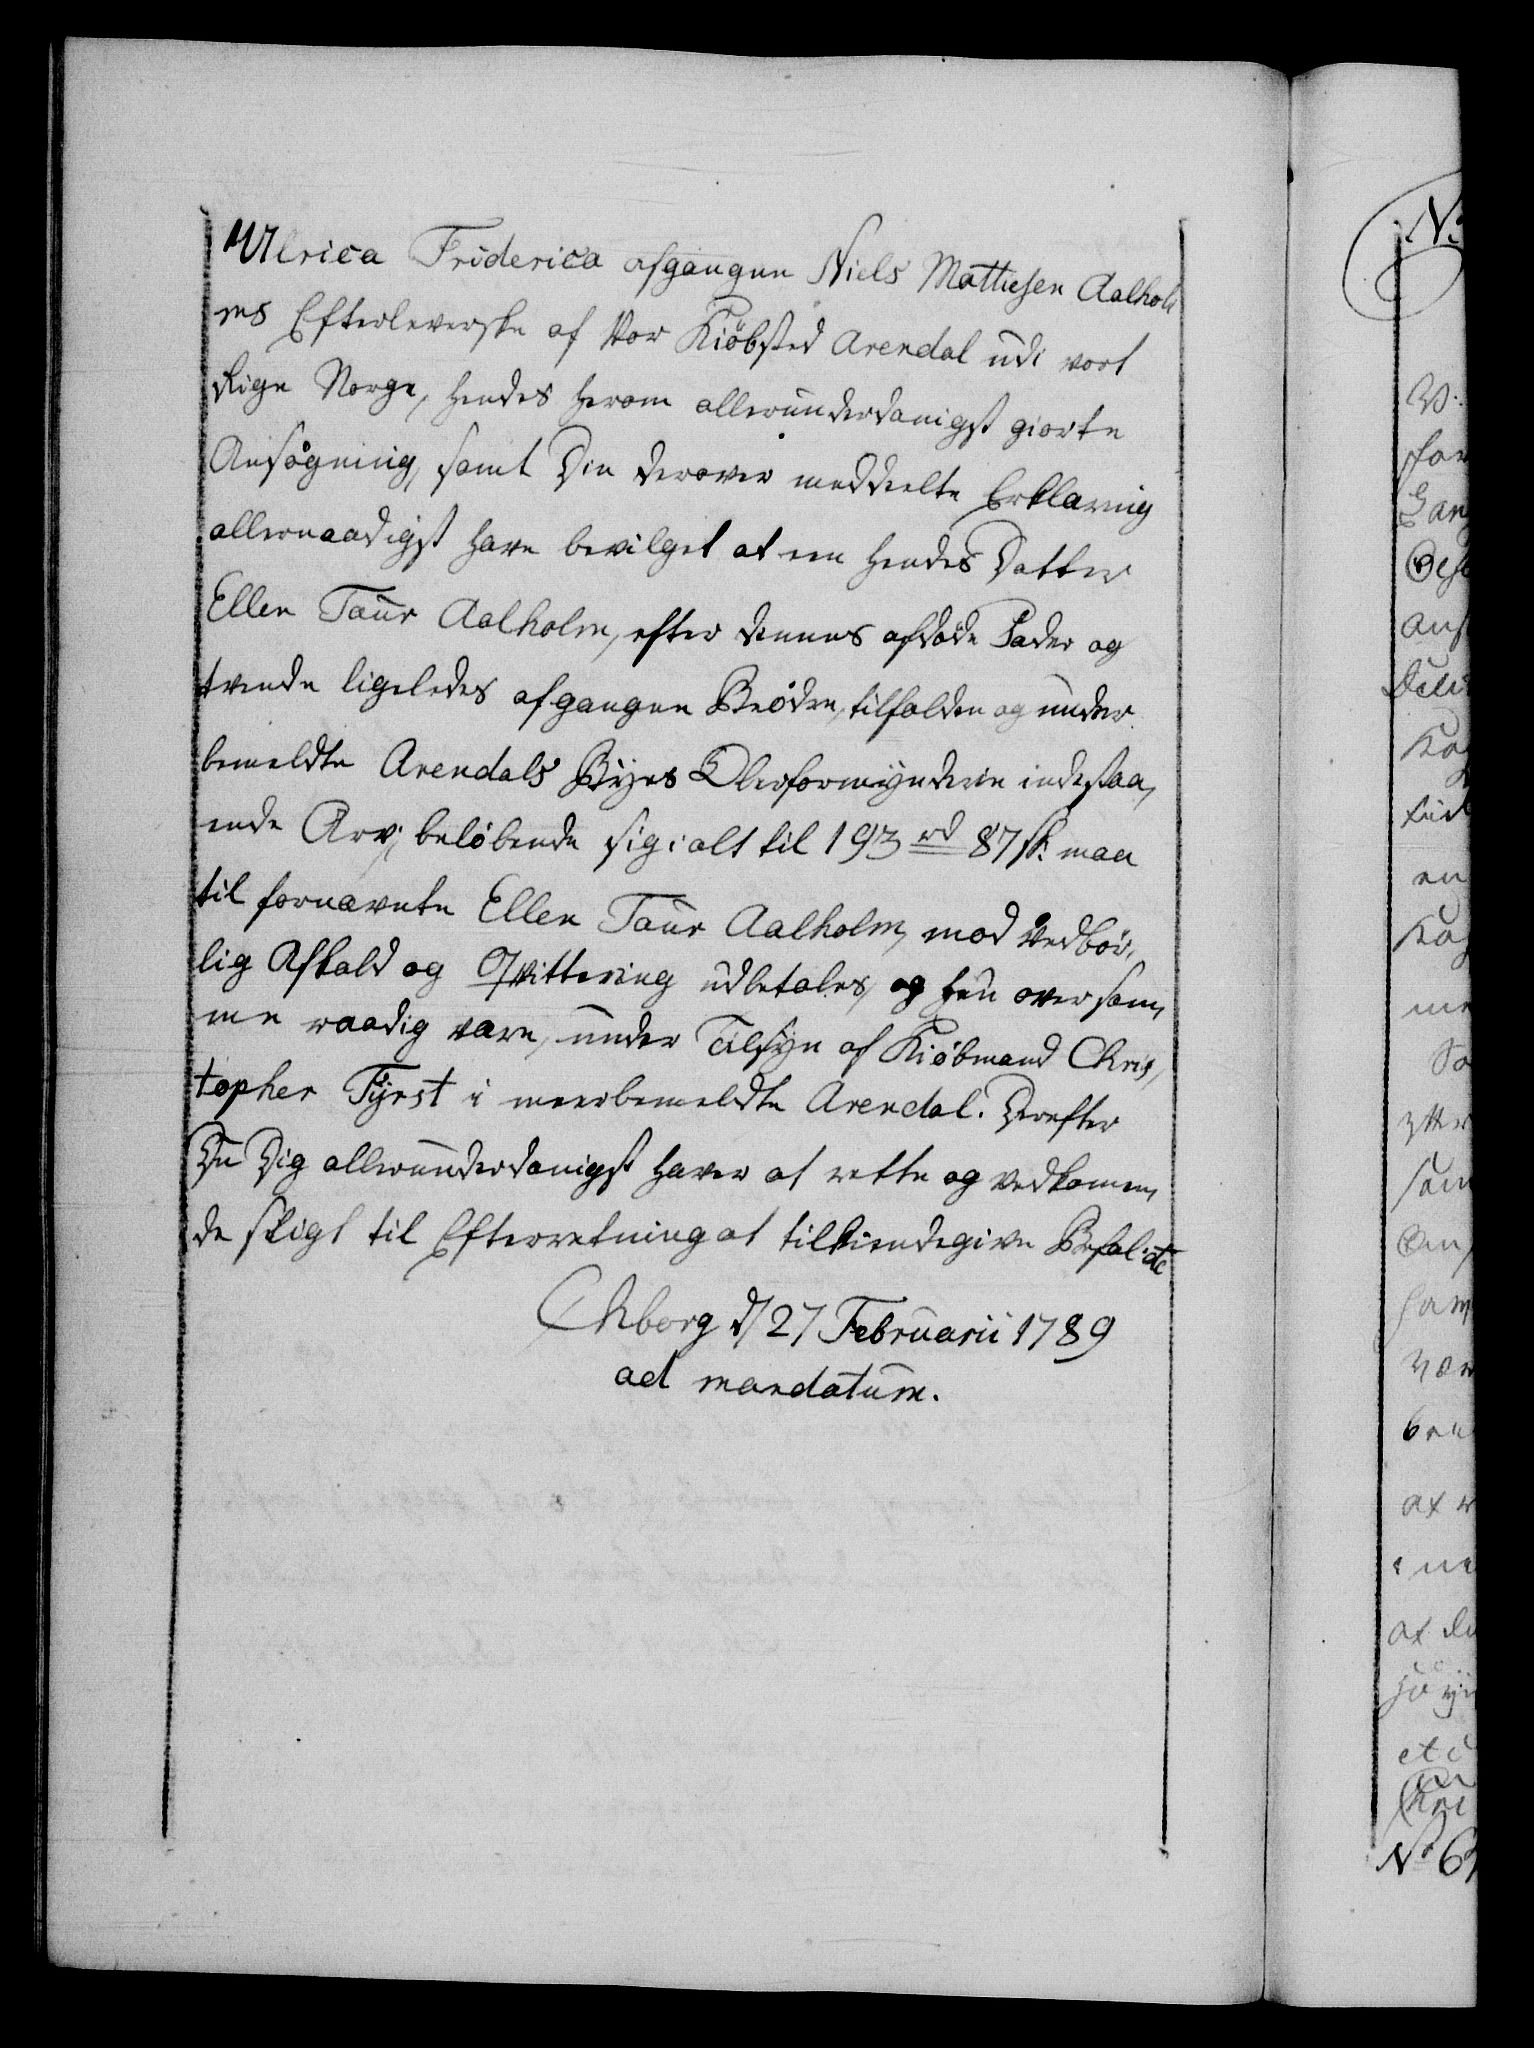 Ulrica Friderica afgangne Niels Mathiesen Aalhol
ms Efterleverske af Vor Kiøbsted Arendal udi vort
Rige Norge, hendes herom allerunderdanigst giorte
Ansøgning, samt Din derover meddeelte Erklæring
allernaadigst have bevilget at een hendes Datter
Ellen Taur Aalholm, efter dennes afdøde Fader og
tvende ligeledes afgangne Brødre, tilfalden og under
bemeldte Arendals Byes Oberformynderie indestaa,
ende Arv, beløbende sig i alt til 193 rd 87 sk: maa
til fornævnte Ellen Taur Aalholm, mod vedbør,
lig Afkald og Qvittering udbetales, og hun over sam,
me raadig være, under Tilsyn af Kiøbmand Chris,
topher Fyrst i meerbemeldte Arendal. Derefter
Du Dig allerunderdanigst haver at rette og vedkommen,
de sligt til Efterretning at tilkiendegive Befal: etc
Chborg d/ 27 Februarii 1789
ad mandatum.